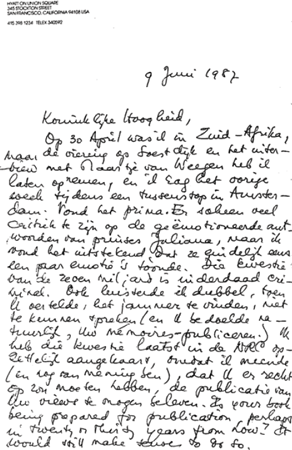 HYATT ON UNION SQUARE
345 STOCKTON STREET
SAN FRANCISCO, CALIFORNIA 94108 USA
415 398 1234 TELEX 340592
9 Juni 1987
Koninklijke Hoogheid,
Op 30 April was ik in Zuid-Afrika,
maar de viering op Soestdijk en het inter-
view met Maartje van Weegen heb ik
laten opnemen, en ik zag het vorige
week tijdens een tussenstop in Amster-
dam. Vond het prima. Er scheen veel
critiek te zijn op de geëmotioneerde ant-
woorden van prinses Juliana, maar ik
vond het uitstekend dat ze eindelijk eens
een paar emotie's toonde. Die kwestie
van de zeven miljard is inderdaad cri-
mineel. Ook luisterde ik dubbel, toen
U vertelde, het jammer te vinden, niet
te kunnen spreken (en U bedoelde na-
tuurlijk, Uw mémoires-publiceren). Ik
heb die kwestie laatst in de NRC op-
zettelijk aangekaart, omdat ik meende
(en nog van mening ben), dat U er recht
op zou moeten hebben, de publicatie van
Uw views te mogen beleven. Is your book
being prepared for publication, perhaps
in twenty or thirty years from now? It
would still make sense to do so.